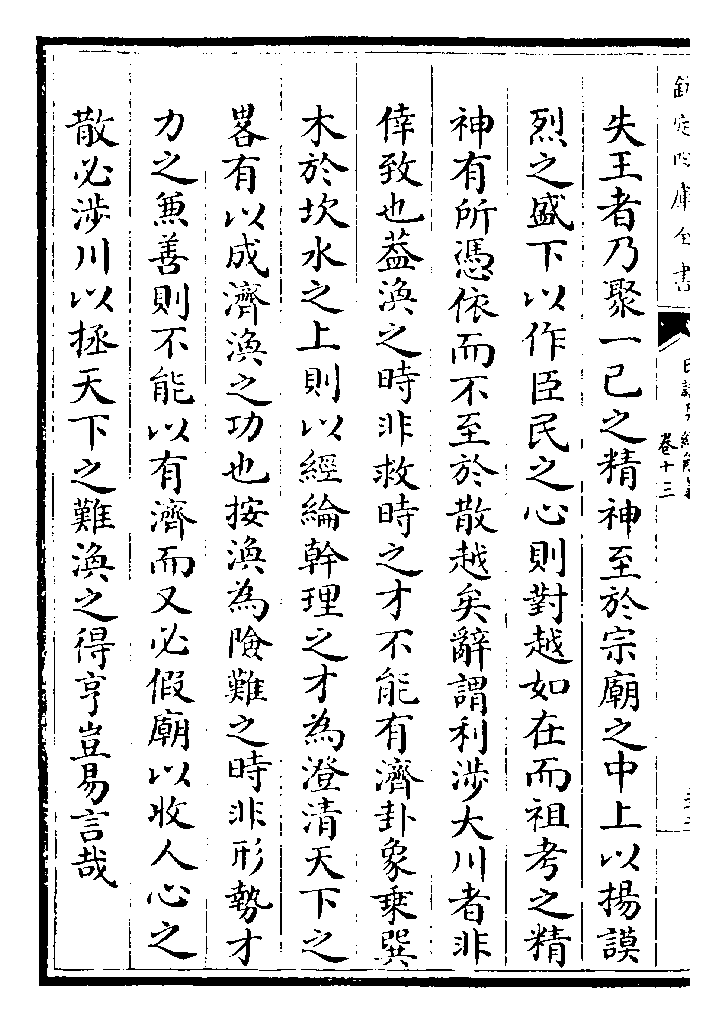 欽定四庫全書
日講易經解義
卷十三
失王者乃聚一己之精神至於宗廟之中上以揚謨
烈之盛下以作臣民之心則對越如在而祖考之精
神有所憑依而不至於散越矣辭謂利涉大川者非
倖致也葢渙之時非救時之才不能有濟卦象乗巽
木於坎水之上則以經綸幹理之才為澄清天下之
畧有以成濟渙之功也按渙為險難之時非形勢才
力之兼善則不能以有濟而又必假廟以收人心之
散必涉川以拯天下之難渙之得亨豈易言哉